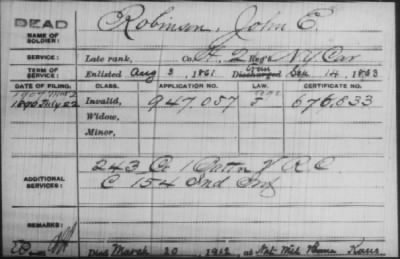 DEAD
NAME OF SOLDIER:
Robinson, John E.
SERVICE:
Late rank, Co. F, 2 Reg't N.Y. Cav
TERM OF SERVICE:
Enlisted Aug 3, 1861 Discharged Sep 14, 1863
DATE OF FILING. CLASS. APPLICATION NO. LAW. CERTIFICATE NO.
1890 July 22 Invalid, 947,057 676,833
Widow,
Minor,
ADDITIONAL SERVICES:
243 Co 1 Batt'n V R C
C 154 Ind Inf
REMARKS:
Died March 20, 1912, at Nat Mil Home Kans